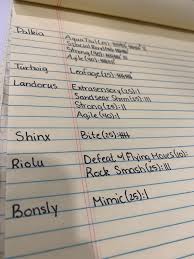 Palkia Aqua Tail
Strong
Agile(40):
Turtwig Leafage(25):
Landorus Extrasensory(25):|
Sandsear Storm(25):|||
Strong(25):||
Agile(40):|
Shinx Bite(25):
Riolu Defeat w/ Flying Moves(10):
Rock Smash(25):|||
Bonsly Mimic(25):|